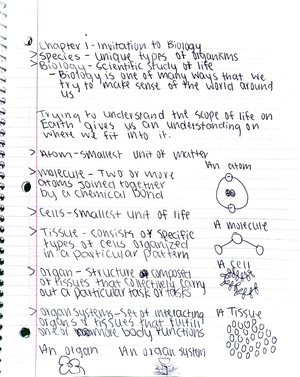 Chapter 1 - Invitation to Biology
> Species - unique types of organisms
> Biology - scientific study of life
- Biology is one of many ways that we
try to make sense of the world around
us
Trying to understand the scope of life on
Earth gives us an understanding on
where we fit into it.
> Atom - smallest unit of matter
An atom
> Molecule - Two or more
atoms joined together
by a chemical bond
> Cells - smallest unit of life
A molecule
> Tissue - consists of specific
types of cells organized
in a particular pattern
A cell
> Organ - Structure composed
of tissues that collectively carry
out a particular task or tasks
A Tissue
> Organ Systems - Set of interacting
organs & tissues that fulfill
one or more body functions
An organ
An organ system